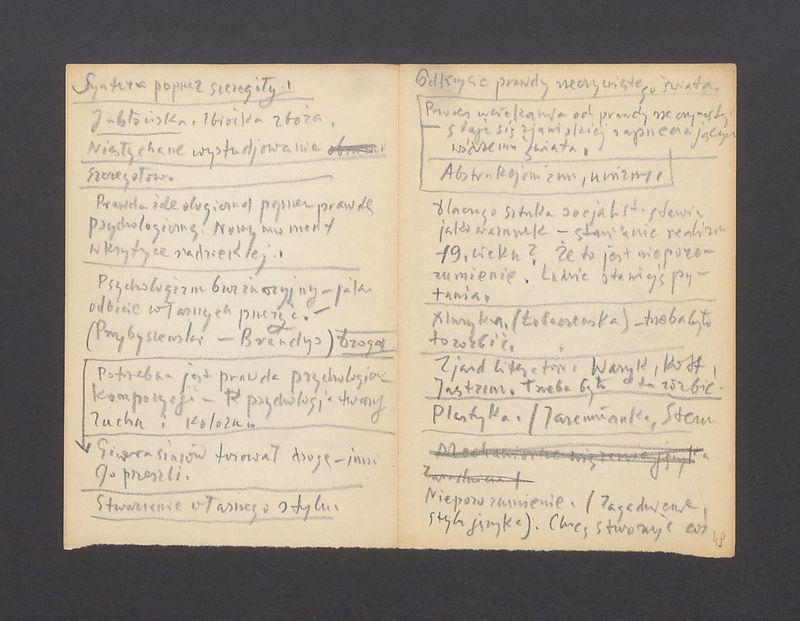 Synteza poprzez szczegóły!
Jabłońska. Zbiórka zboża.
Niesłychane wystudjowanie
szczegółów.
Prawda ideologiczna poprzez prawdę
psychologiczną. Nowy moment
w krytyce radzieckiej!
Psychologizm burżuazyjny – jako
odbicie własnych przeżyć. –
(Przybyszewski – Brandys) Droga
Potrzebna jest prawda psychologicz
kompozycji – psychologja twarzy
ruchu i koloru.
torował drogę – inni
go przeszli.
Stwarzanie własnego stylu.
Odkrycie prawdy rzeczywistego świata.
Proces uciekania od prawdy rzeczywisty
staje się zjawiskiej
świata.
Abstrakcjonizm, unizm!
Dlaczego sztuka socjalist. stawia
jako warunek – stawianie realizm
19. wieku? Że to jest nieporo-
zumienie. Ludzie stawiają py-
tania.
Muzyka. (Łobaczewska) – trzeba było
to zrobić.
Zjazd literatów. Ważyk, Kott,
Jastrun. Trzeba było to zrobić
Plastyka. (Jaremianka, Stern
Nieporozumienie. (Zagadnienie
styl języka). Chcę stworzyć